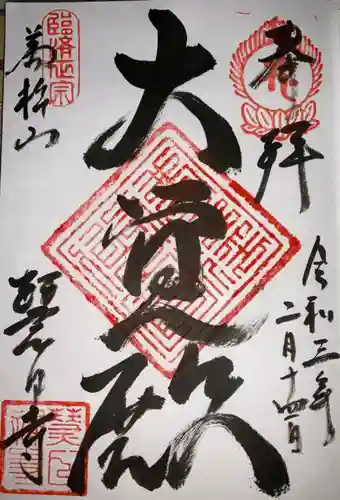 奉拝
令和三年
二月十四日
大覚殿
臨済正宗
萬松山
慧日寺